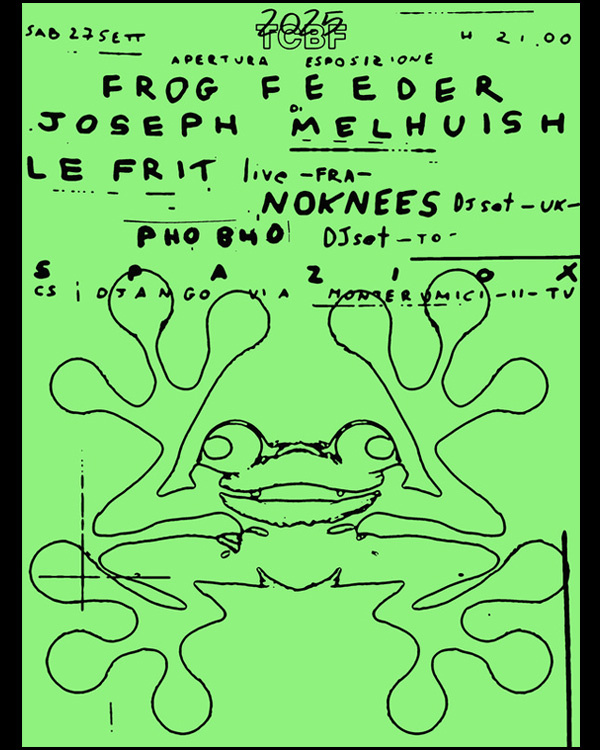 2025
TCBF
SAB 27 SETT H 21.00
APERTURA ESPOSIZIONE
FROG FEEDER
DI
JOSEPH MELHUISH
LE FRIT live -FRA-
NOKNEES DJset -UK-
PHO BHO DJset -TO-
SPAZIOX
CS DJANGO VIA MONTERUMICI -11- TV